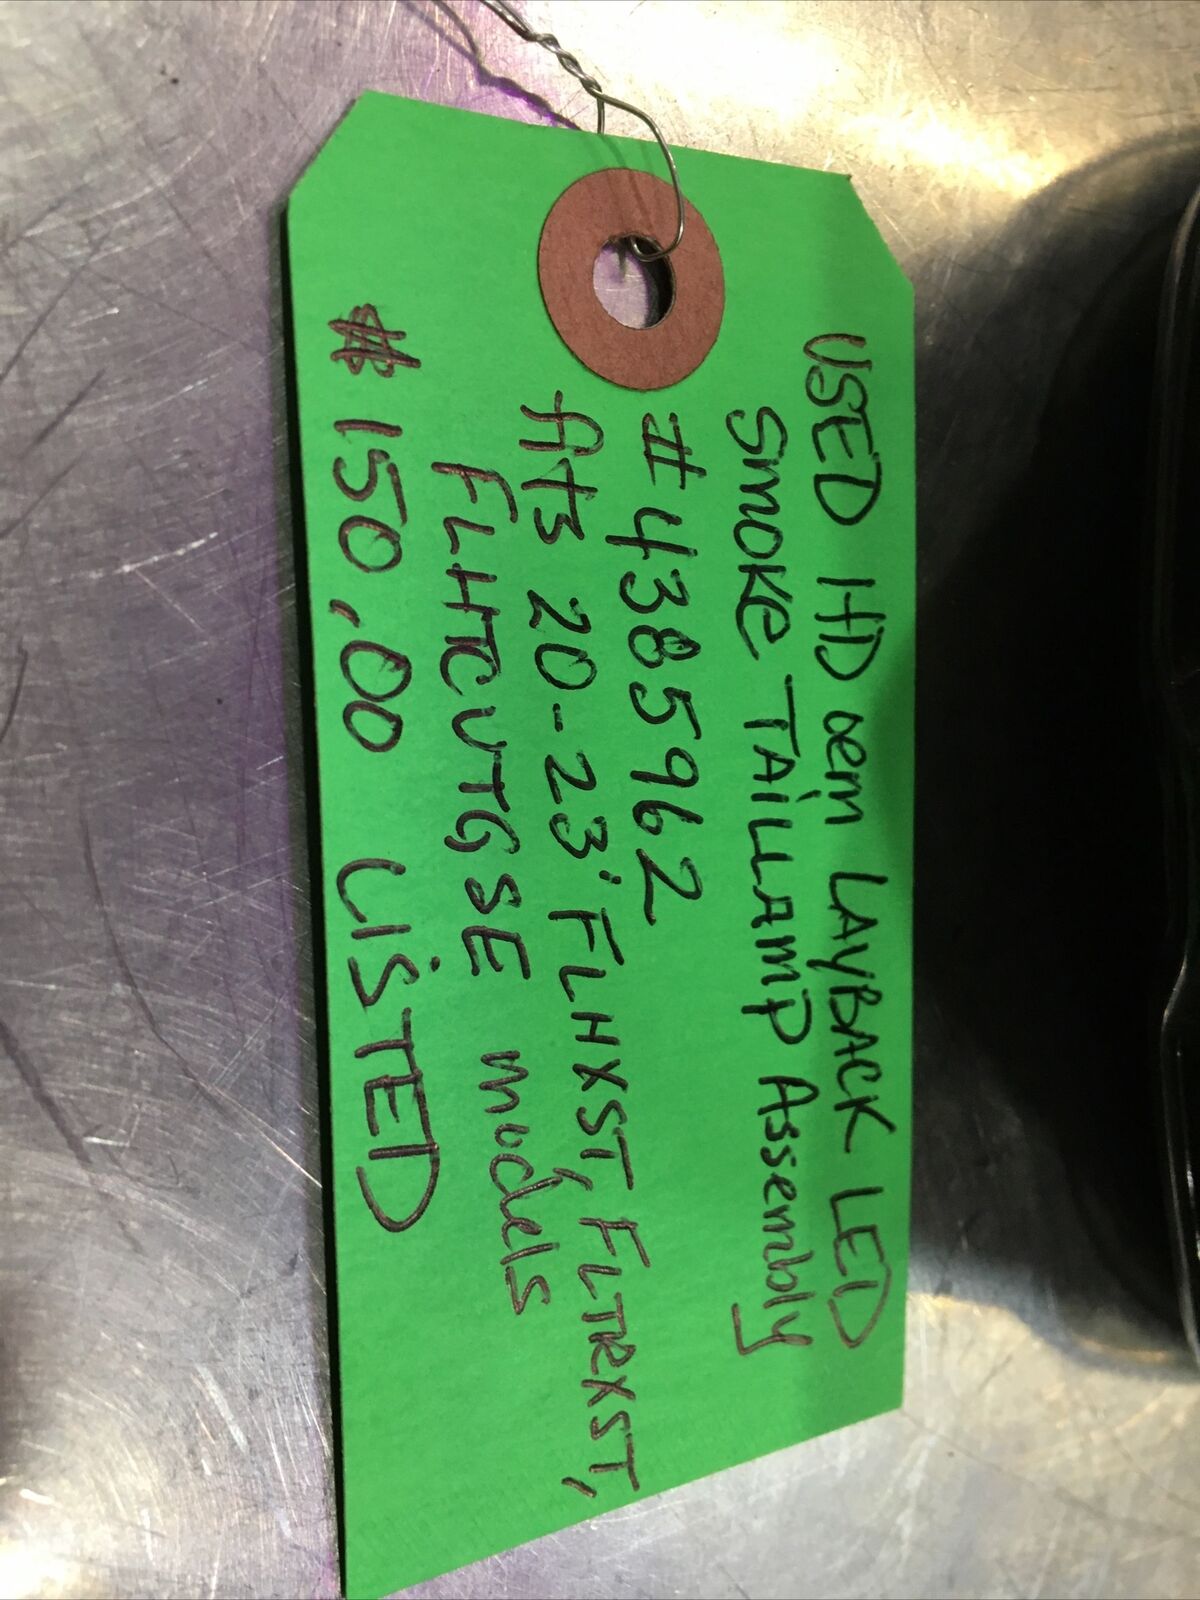 USED HD oem LAYBACK LED
SMOKE TAiLLAMP Assembly
#4385962
fits 20-23' FLHXST, FLTRXST,
FLHTCUTGSE models
$150.00 LiSTED